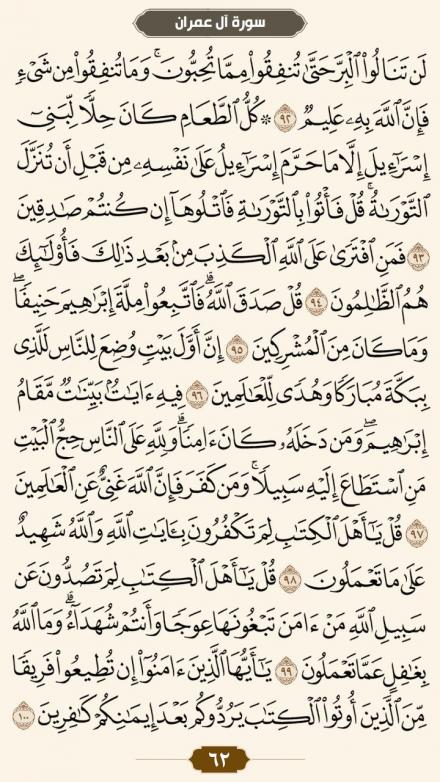 سورة آل عمران
لَن تَنَالُوا۟ ٱلْبِرَّ حَتَّىٰ تُنفِقُوا۟ مِمَّا تُحِبُّونَ ۚ وَمَا تُنفِقُوا۟ مِن شَىْءٍ
فَإِنَّ ٱللَّهَ بِهِۦ عَلِيمٌ ٩٢ ۞ كُلُّ ٱلطَّعَامِ كَانَ حِلًّا لِّبَنِىٓ
إِسْرَٰٓءِيلَ إِلَّا مَا حَرَّمَ إِسْرَٰٓءِيلُ عَلَىٰ نَفْسِهِۦ مِن قَبْلِ أَن تُنَزَّلَ
ٱلتَّوْرَىٰةُ ۗ قُلْ فَأْتُوا۟ بِٱلتَّوْرَىٰةِ فَٱتْلُوهَآ إِن كُنتُمْ صَٰدِقِينَ
٩٣ فَمَنِ ٱفْتَرَىٰ عَلَى ٱللَّهِ ٱلْكَذِبَ مِنۢ بَعْدِ ذَٰلِكَ فَأُو۟لَٰٓئِكَ
هُمُ ٱلظَّٰلِمُونَ ٩٤ قُلْ صَدَقَ ٱللَّهُ ۗ فَٱتَّبِعُوا۟ مِلَّةَ إِبْرَٰهِيمَ حَنِيفًا ۖ
وَمَا كَانَ مِنَ ٱلْمُشْرِكِينَ ٩٥ إِنَّ أَوَّلَ بَيْتٍ وُضِعَ لِلنَّاسِ لَلَّذِى
بِبَكَّةَ مُبَارَكًا وَهُدًى لِّلْعَٰلَمِينَ ٩٦ فِيهِ ءَايَٰتٌۢ بَيِّنَٰتٌ مَّقَامُ
إِبْرَٰهِيمَ ۖ وَمَن دَخَلَهُۥ كَانَ ءَامِنًا ۗ وَلِلَّهِ عَلَى ٱلنَّاسِ حِجُّ ٱلْبَيْتِ
مَنِ ٱسْتَطَاعَ إِلَيْهِ سَبِيلًا ۚ وَمَن كَفَرَ فَإِنَّ ٱللَّهَ غَنِىٌّ عَنِ ٱلْعَٰلَمِينَ
٩٧ قُلْ يَٰٓأَهْلَ ٱلْكِتَٰبِ لِمَ تَكْفُرُونَ بِـَٔايَٰتِ ٱللَّهِ وَٱللَّهُ شَهِيدٌ
عَلَىٰ مَا تَعْمَلُونَ ٩٨ قُلْ يَٰٓأَهْلَ ٱلْكِتَٰبِ لِمَ تَصُدُّونَ عَن
سَبِيلِ ٱللَّهِ مَنْ ءَامَنَ تَبْغُونَهَا عِوَجًا وَأَنتُمْ شُهَدَآءُ ۗ وَمَا ٱللَّهُ
بِغَٰفِلٍ عَمَّا تَعْمَلُونَ ٩٩ يَٰٓأَيُّهَا ٱلَّذِينَ ءَامَنُوٓا۟ إِن تُطِيعُوا۟ فَرِيقًا
مِّنَ ٱلَّذِينَ أُوتُوا۟ ٱلْكِتَٰبَ يَرُدُّوكُم بَعْدَ إِيمَٰنِكُمْ كَٰفِرِينَ ١٠٠
٦٢